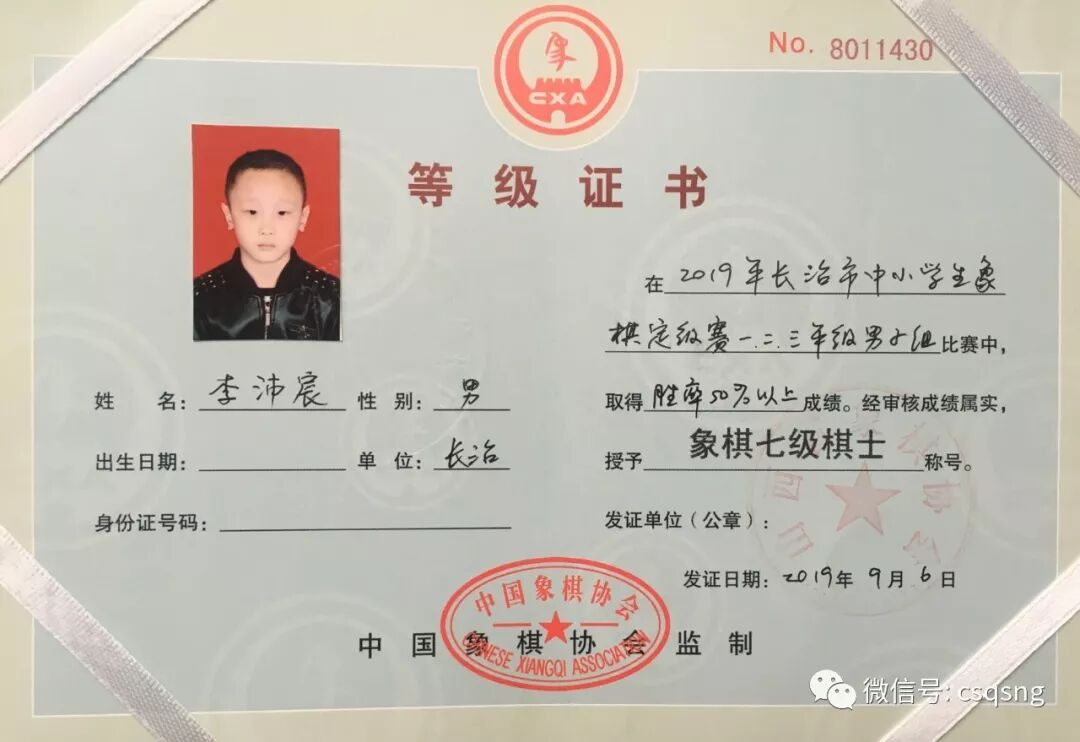 No. 8011430
象
CXA
等级证书
在2019年长治市中小学生象
棋定级赛一.二.三年级男子组比赛中，
取得胜率50%以上成绩。经审核成绩属实，
授予象棋七级棋士称号。
发证单位（公章）：
发证日期：2019年9月6日
姓 名：李沛宸 性 别：男
出生日期： 单 位：长治
身份证号码：
中国象棋协会
CHINESE XIANGQI ASSOCIATION
中国象棋协会监制
微信号: csqsng